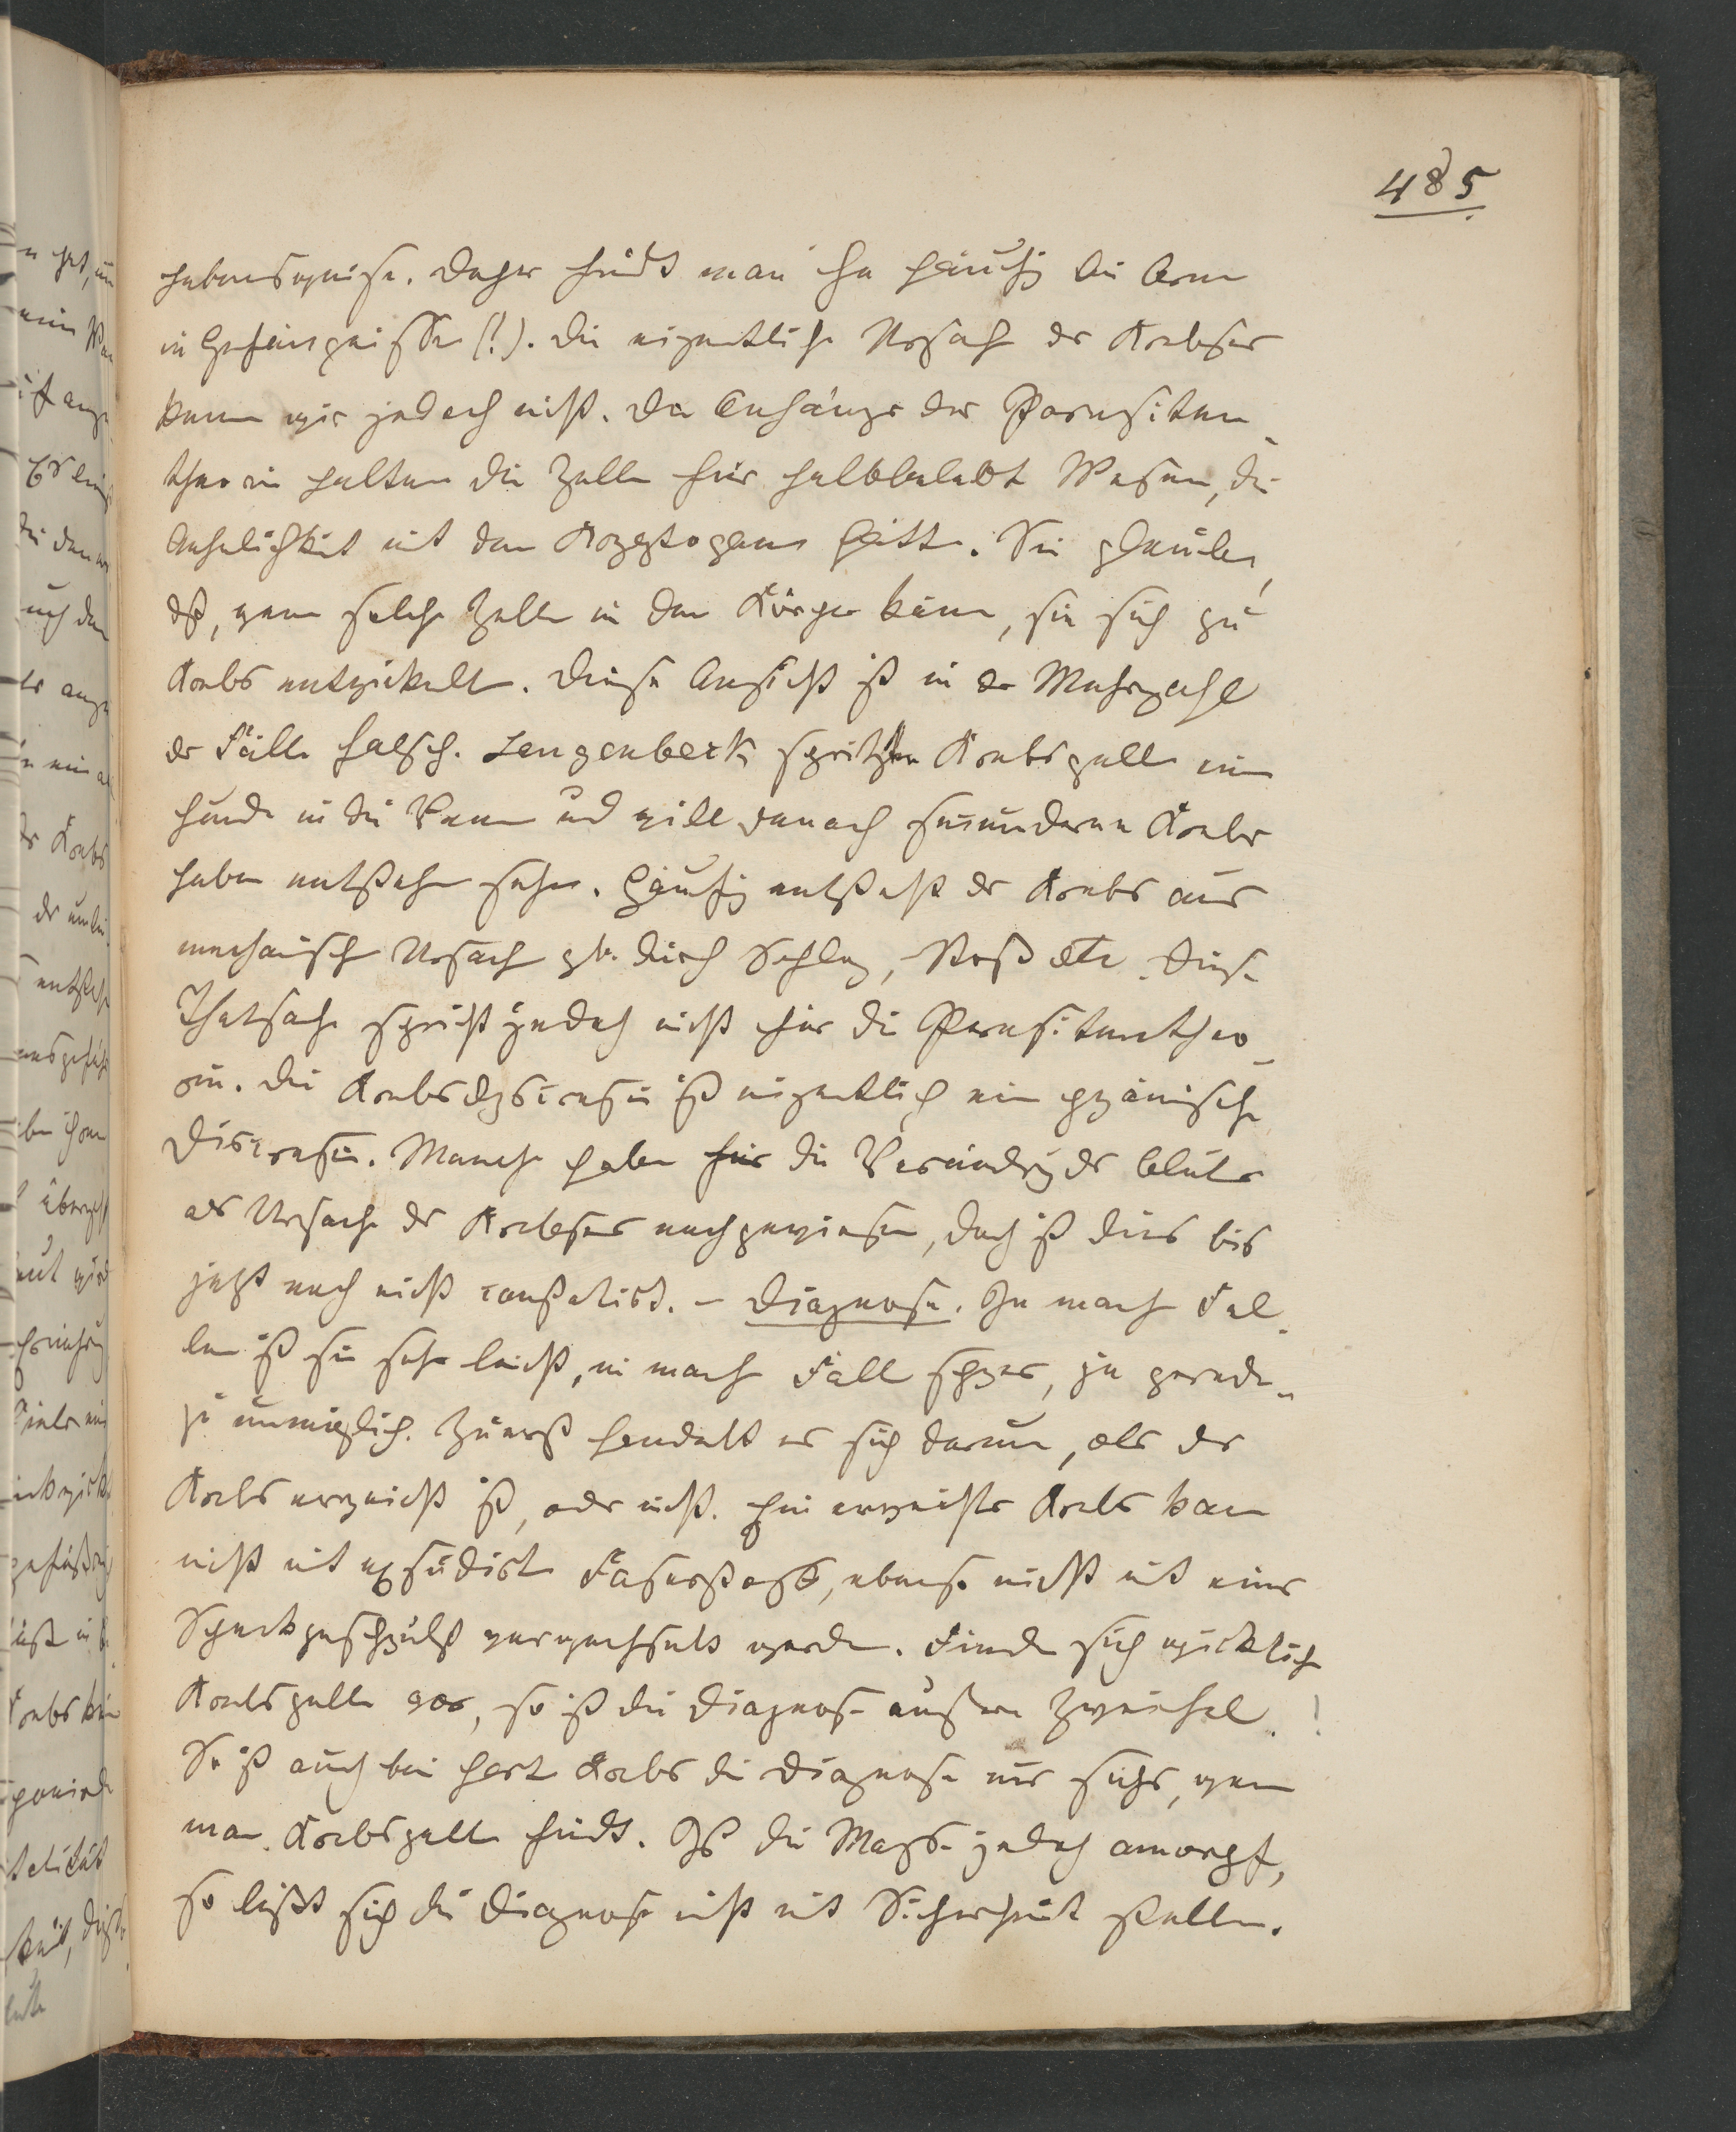 485
Lebensweise. Daher findt man ihn häufig bei Arm
in Gefängnissen (!). Die eigentliche Ursach des Krebses
kenn wir jedoch nicht. Die Anhänger der Parasiten-
theorie halten die Zellen für halbbelebt Wesen, die
Aehnlichkeit mit den Kryptogam hätt. Sie glauben,
dß, wenn solche Zelle in den Körper käm, sie sich zu
Krebs entwickelt. Diese Ansicht ist in der Mehrzahl
der Fälle falsch. Langenbeck spritzte Krebszelle ein
Hunde in die Vene und will danach secundären Krebs
haben entstehen sehen. Häufig entsteht der Krebs aus
mechanisch Ursach z.b. durch Schlag, Stoß etc. Diese
Thatsache spricht jedoch nicht für die Parasitentheo-
rie. Die Krebsdyscrasie ist eigentlich ein hyämische
Discrasie. Manche haben für die Veränderung des Bluts
als Ursache des Krebses nachgewiesen, doch ist dies bis
jetzt noch nicht constatirt. – Diagnose. In manch Fäl-
len ist sie sehr leicht, in manch Fäll schwer, ja gerade-
zu unmöglich. Zuerst handelt es sich darum, ob der
Krebs erweicht ist, oder nicht. Ein erweichter Krebs kan
nicht mit exsudirt Faserstoff, ebenso nicht mit einer
Speckgeschwulst verwechselt werden. Finde sich wirklich
Krebszelle vor, so ist die Diagnose außer Zweifel!
So ist auch bei hart Krebs die Diagnose nur sicher, wenn
man Krebszelle findt. Ist die Masse jedoch amorph,
so läßt sich die Diagnose nicht mit Sicherheit stellen.